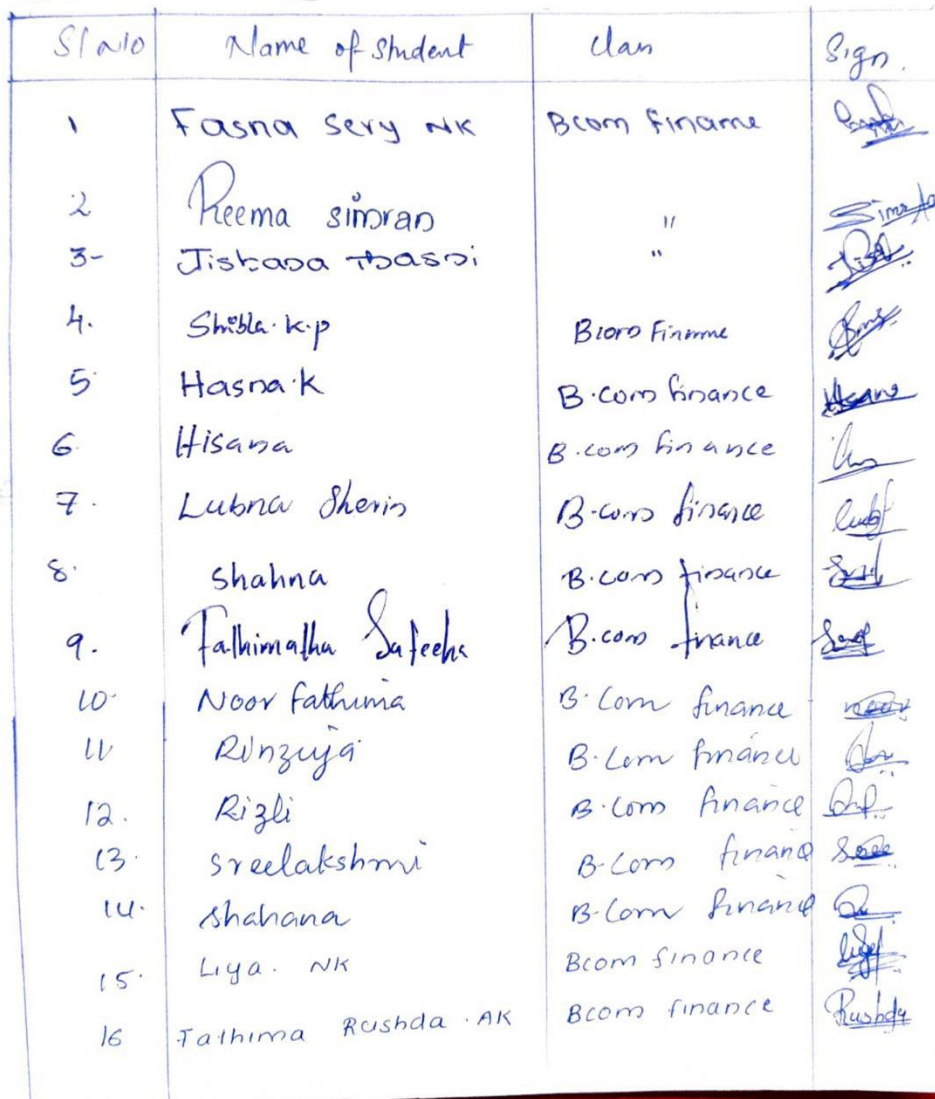 Sl No Name of Student Class Sign.
1 Fasna Sery NK Bcom Finance
2 Reema simran "
3- Jishana Thasni "
4. Shibla. K.p Bcom Finance
5 Hasna. K B.com finance
6. Hisana B.com finance
7. Lubna Sherin B.com finance
8. Shahna B.com finance
9. Fathimatha Safeeha B.com finance
10. Noor Fathima B.Com finance noor
11 Rinzuja B.Com finance
12. Rizli B.Com finance
13. Sreelakshmi B.Com finance
14. Shahana B.Com finance
15. Liya. NK Bcom finance
16 Fathima Rushda. AK Bcom finance Rushda